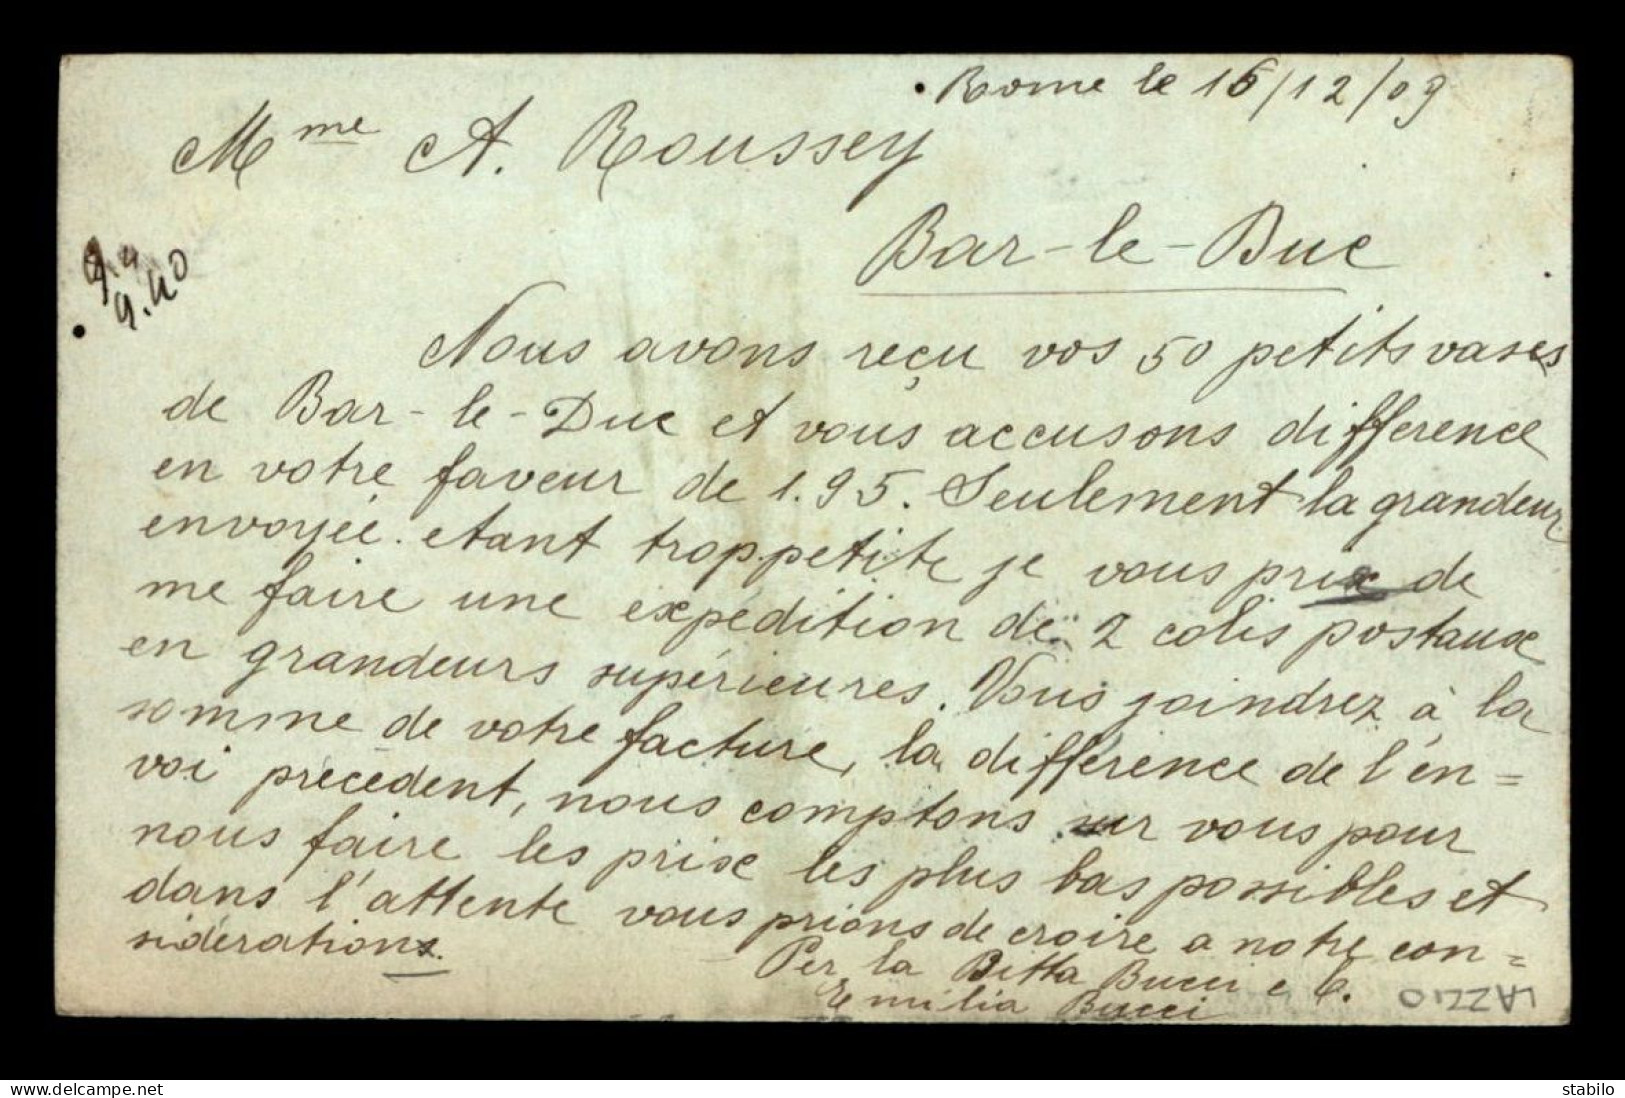 Rome le 16/12/09
Mme A. Roussey
Bar-le-Duc
9.40
Nous avons reçu vos 50 petits vases
de Bar-le-Duc et vous accusons difference
en votre faveur de 1.95. Seulement la grandeur
envoyée etant trop petite je vous prie de
me faire une expédition de 2 colis postaux
en grandeurs supérieures. Vous joindrez à la
somme de votre facture, la différence de l'en=
voi précédent, nous comptons sur vous pour
nous faire les prix les plus bas possibles et
dans l'attente vous prions de croire a notre con=
sidérations.
Per la Ditta Bucci e C.
Emilia Bucci
LAZZIO
delcampe.net
stabilo